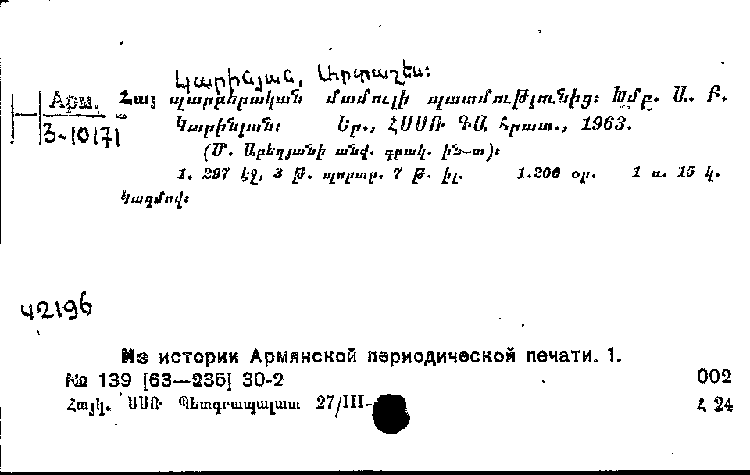 Կարինյան, Արտաշես:
Арм. Հայ պարբերական մամուլի պատմությունից: Խմբ. Ա. Բ.
3-10171 Կարինյան: Եր., ՀՍՍՌ ԳԱ հրատ., 1963.
(Մ. Աբեղյանի անվ. գրակ. ին-տ):
1. 297 էջ, 3 թ. պորտր. 7 թ. իլ. 1.200 օր. 1 ռ. 15 կ.
Կազմով:
42196
Из истории Армянской периодической печати. 1.
№ 139 [63—235] 30-2 002
Հայկ. ՍՍՌ Պետգրապալատ 27/III- Հ 24